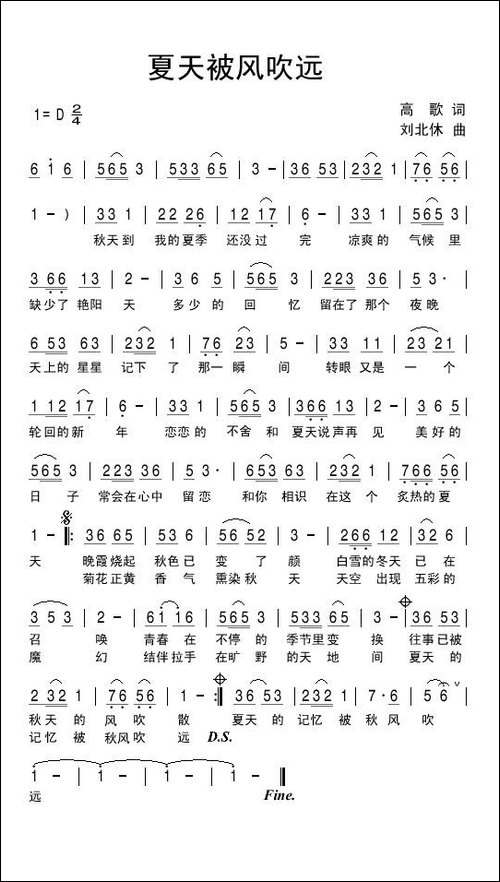 夏天被风吹远
1=D 2/4
高 歌 词
刘北休 曲
6 1 6 | 565 3 | 533 65 | 3 - | 36 53 | 232 1 | 76 56 |
1 - ) | 33 1 | 22 26 | 12 17 | 6 - | 33 1 | 565 3 |
秋天到 我的夏季 还没过 完 凉爽的 气候里
3 66 13 | 2 - | 3 6 5 | 565 3 | 223 36 | 232 1 | 5 3· |
缺少了 艳阳 天 多少的 回 忆 留在了 那个 夜晚
6 53 63 | 232 1 | 76 23 | 5 - | 33 11 | 23 21 |
天上的 星星 记下 了 那一 瞬 间 转眼 又是 一 个
1 12 17 | 6 - | 33 1 | 565 3 | 366 33 | 2 - | 3 6 5 |
轮回的新 年 恋恋的 不舍 和 夏天说声再 见 美好的
565 3 | 223 36 | 5 3· | 653 63 | 232 1 | 766 56 |
日 子 常会在心中 留恋 和你 相识 在这 个 炙热的夏
1 - ‖: 36 65 | 53 6 | 56 52 | 3 - | 266 12 | 32 6 |
天 晚霞烧起 秋色已 变 了 颜 白雪的冬天 已在
菊花正黄 香 气 熏染秋 天 天空 出现 五彩的
3 5 3 | 2 - | 61 16 | 5 3 5 | 356 52 | 3 - | 36 53 |
召 唤 青春 在 不停 的 季节里变 换 往事已被
魔 幻 结伴拉手 在旷 野 的天 地 间 夏天 的
2 32 1 | 76 56 | 1 - :‖ 36 53 | 232 1 | 7·6 | 5 6 ∨ |
秋天 的 风吹 散 夏天 的 记忆 被 秋风 吹
记忆 被 秋风吹 远 D.S.
1 - | 1 - | 1 - | 1 - ‖
远 Fine.